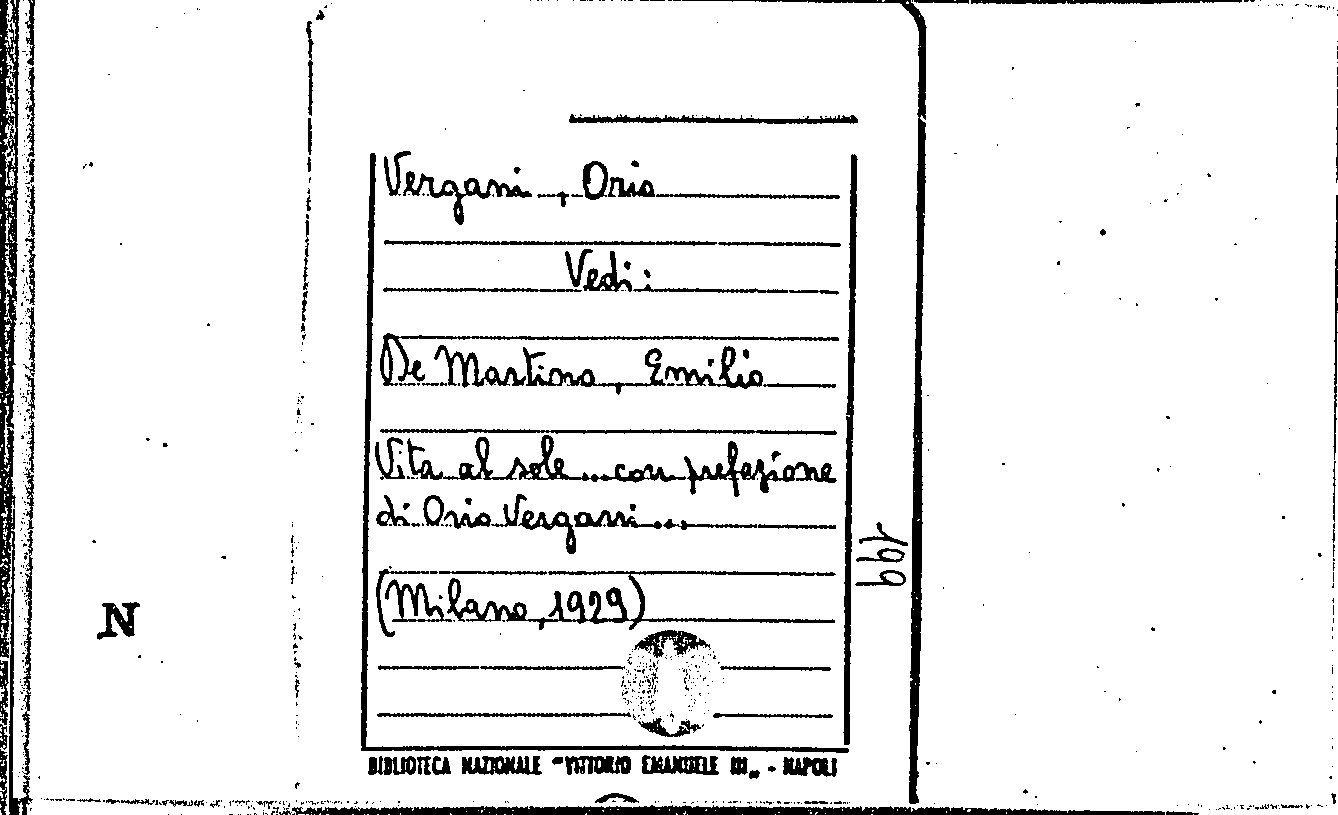 Vergani, Orio
Vedi:
De Martino, Emilio
Vita al sole...con prefazione
di Orio Vergani...
(Milano, 1929)
199
N
BIBLIOTECA NAZIONALE "VITTORIO EMANUELE III„ - NAPOLI